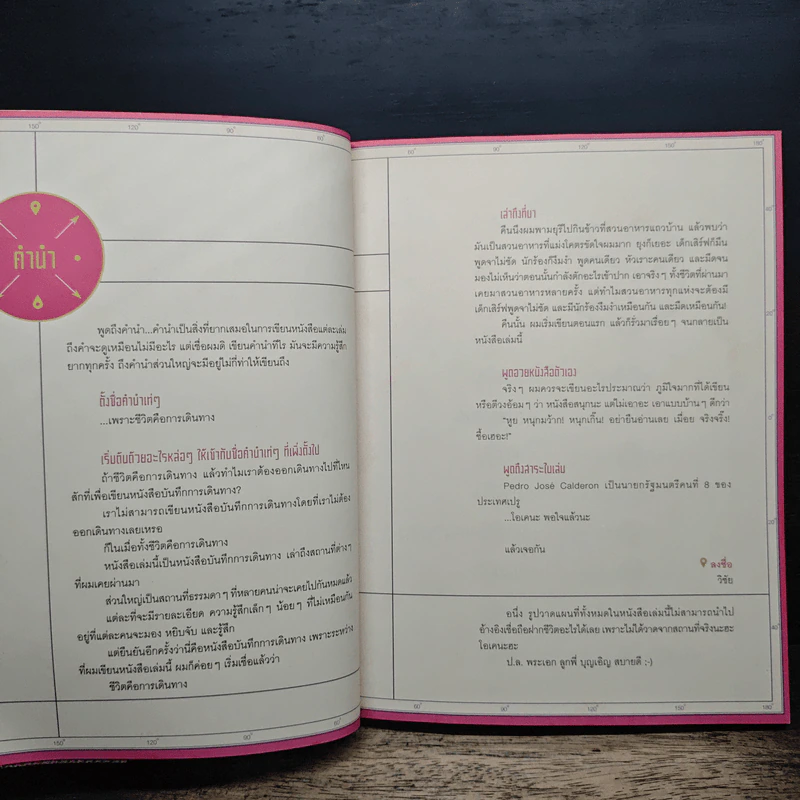 150° 120° 90° 60°
คำนำ
พูดถึงคำนำ...คำนำเป็นสิ่งที่ยากเสมอในการเขียนหนังสือแต่ละเล่ม
ถึงคำจะดูเหมือนไม่มีอะไร แต่เชื่อผมดิ เขียนคำนำทีไร มันจะมีความรู้สึก
ยากทุกครั้ง ถึงคำนำส่วนใหญ่จะมีอยู่ไม่กี่ท่าให้เขียนถึง
ตั้งชื่อคำนำเท่ๆ
...เพราะชีวิตคือการเดินทาง
เริ่มต้นด้วยอะไรหล่อๆ ให้เข้ากับชื่อคำนำเท่ๆ ที่เพิ่งตั้งไป
ถ้าชีวิตคือการเดินทาง แล้วทำไมเราต้องออกเดินทางไปที่ไหน
สักที่เพื่อเขียนหนังสือบันทึกการเดินทาง?
เราไม่สามารถเขียนหนังสือบันทึกการเดินทางโดยที่เราไม่ต้อง
ออกเดินทางเลยเหรอ
ก็ในเมื่อทั้งชีวิตคือการเดินทาง
หนังสือเล่มนี้เป็นหนังสือบันทึกการเดินทาง เล่าถึงสถานที่ต่างๆ
ที่ผมเคยผ่านมา
ส่วนใหญ่เป็นสถานที่ธรรมดาๆ ที่หลายคนน่าจะเคยไปกันหมดแล้ว
แต่ละที่จะมีรายละเอียด ความรู้สึกเล็กๆ น้อยๆ ที่ไม่เหมือนกัน
อยู่ที่แต่ละคนจะมอง หยิบจับ และรู้สึก
แต่ยืนยันอีกครั้งว่านี่คือหนังสือบันทึกการเดินทาง เพราะระหว่าง
ที่ผมเขียนหนังสือเล่มนี้ ผมก็ค่อยๆ เริ่มเชื่อแล้วว่า
ชีวิตคือการเดินทาง
150° 120° 90° 60°
60° 90° 120° 150° 180°
เล่าถึงที่มา
คืนนึงผมพามยุรีไปกินข้าวที่สวนอาหารแถวบ้าน แล้วพบว่า
มันเป็นสวนอาหารที่แม่งโคตรขัดใจผมมาก ยุงก็เยอะ เด็กเสิร์ฟก็มึน
พูดจาไม่ชัด นักร้องก็งึมงำ พูดคนเดียว หัวเราะคนเดียว และมืดจน
มองไม่เห็นว่าตอนนั้นกำลังตักอะไรเข้าปาก เอาจริงๆ ทั้งชีวิตที่ผ่านมา
เคยมาสวนอาหารหลายครั้ง แต่ทำไมสวนอาหารทุกแห่งจะต้องมี
เด็กเสิร์ฟพูดจาไม่ชัด และมีนักร้องงึมงำเหมือนกัน และมืดเหมือนกัน!
คืนนั้น ผมเริ่มเขียนตอนแรก แล้วก็รั่วมาเรื่อยๆ จนกลายเป็น
หนังสือเล่มนี้
พูดอวยหนังสือตัวเอง
จริงๆ ผมควรจะเขียนอะไรประมาณว่า ภูมิใจมากที่ได้เขียน
หรือตีวงอ้อมๆ ว่า หนังสือสนุกนะ แต่ไม่เอาอะ เอาแบบบ้านๆ ดีกว่า
"หูย หนุกมว้าก! หนุกเกิ๊น! อย่ายืนอ่านเลย เมื่อย จริงจริ๊ง!
ซื้อเหอะ!"
พูดถึงสาระในเล่ม
Pedro José Calderon เป็นนายกรัฐมนตรีคนที่ 8 ของ
ประเทศเปรู
...โอเคนะ พอใจแล้วนะ
แล้วเจอกัน
ลงชื่อ
วิชัย
อนึ่ง รูปวาดแผนที่ทั้งหมดในหนังสือเล่มนี้ไม่สามารถนำไป
อ้างอิงเชื่อถือฝากชีวิตอะไรได้เลย เพราะไม่ได้วาดจากสถานที่จริงนะฮะ
โอเคนะฮะ
ป.ล. พระเอก ลูกพี่ บุญเอิญ สบายดี ;-)
60° 90° 120° 150° 180°